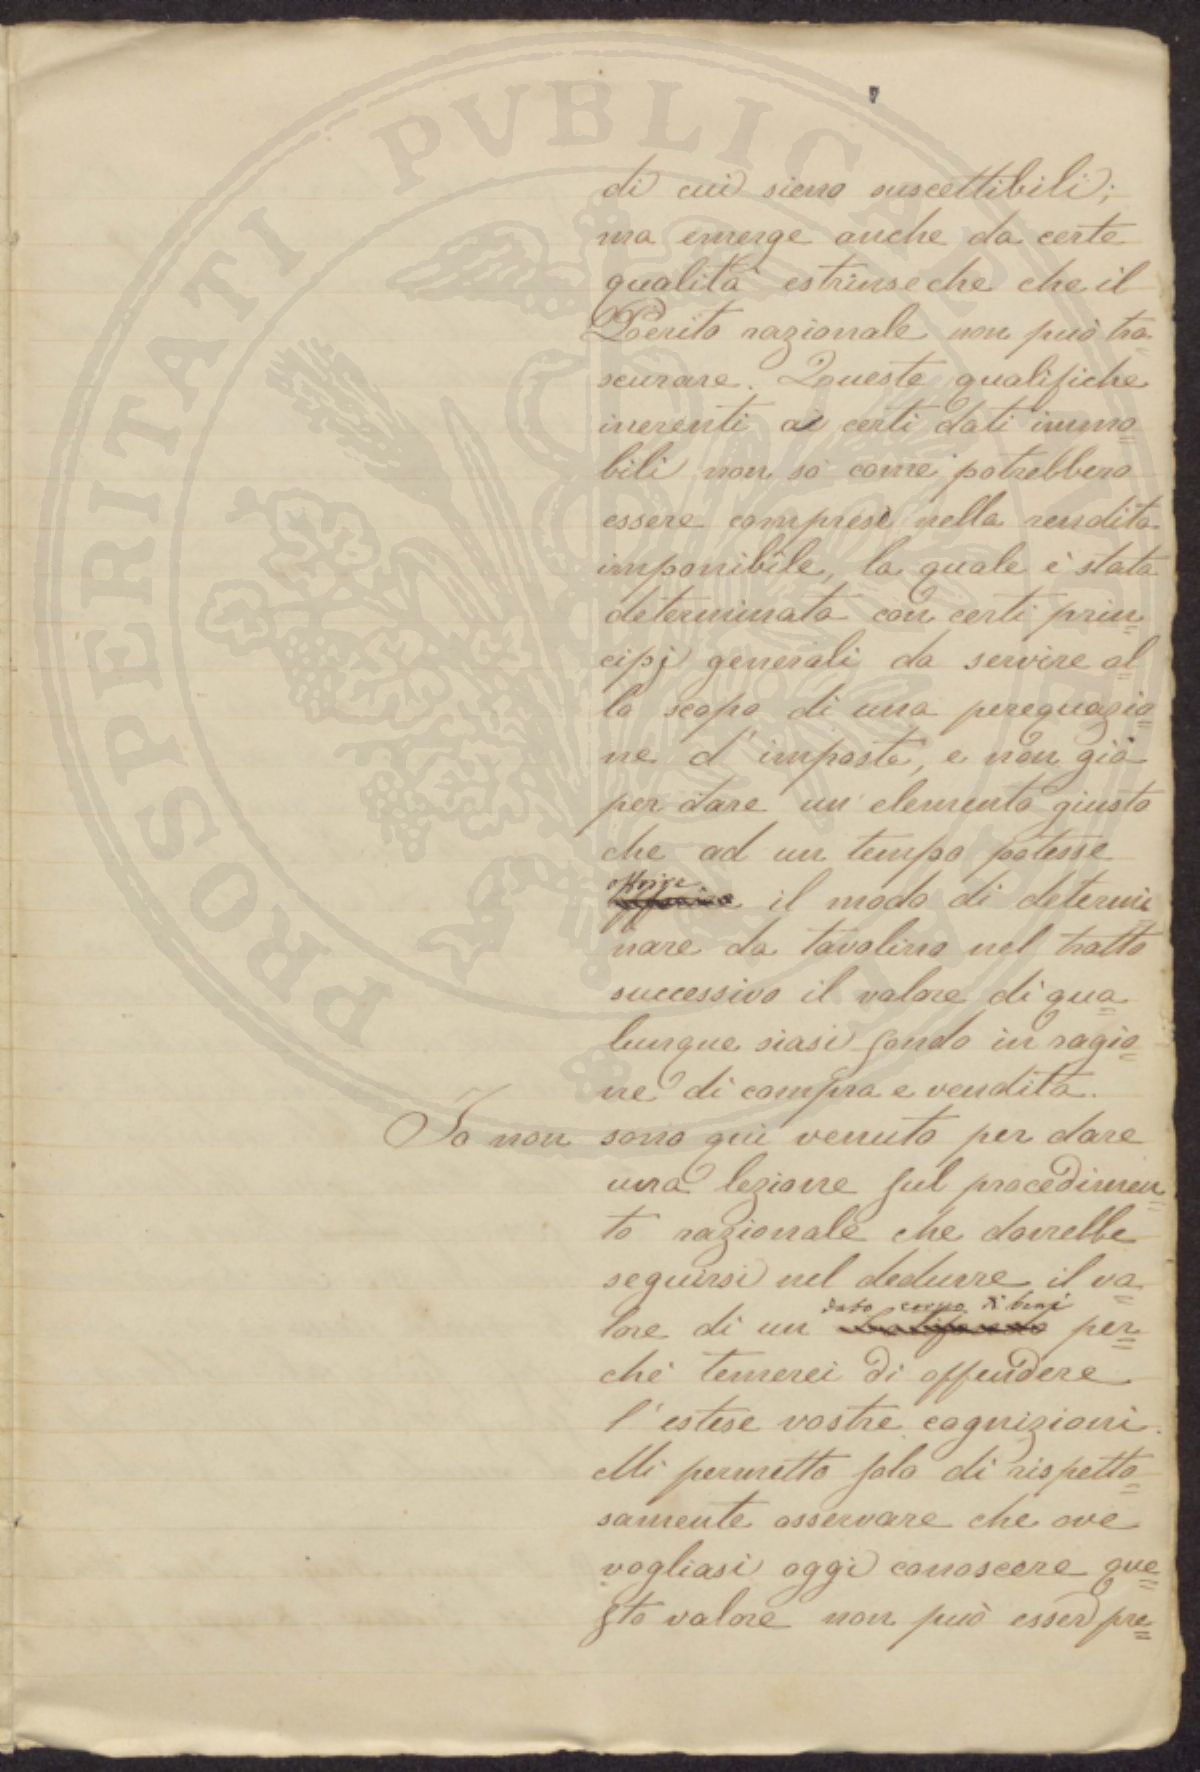 PROSPERITATI PVBLICAE AVGENDAE
di cui sieno suscettibili;
ma emerge anche da certe
qualità estrinseche che il
Perito razionale non può tra-
scurare. Queste qualifiche
inerenti ai certi dati immo=
bili non so come potrebbero
essere comprese nella rendita
imponibile, la quale è stata
determinata con certi prin=
cipj generali da servire al=
lo scopo di una perequazio=
ne d'imposta, e non già
per dare un elemento giusto
che ad un tempo potesse
offrire
il modo di determi=
nare da tavolino nel tratto
successivo il valore di qua=
lunque siasi fondo in ragio=
ne di compra e vendita.
Io non sono qui venuto per dare
una lezione sul procedimen=
to razionale che dovrebbe
seguirsi nel dedurre il va=
dato corpo di beni
lore di un per=
chè temerei di offendere
l'estese vostre cognizioni.
Mi permetto solo di rispetto=
samente osservare che ove
vogliasi oggi conoscere que=
sto valore non può esser pre=